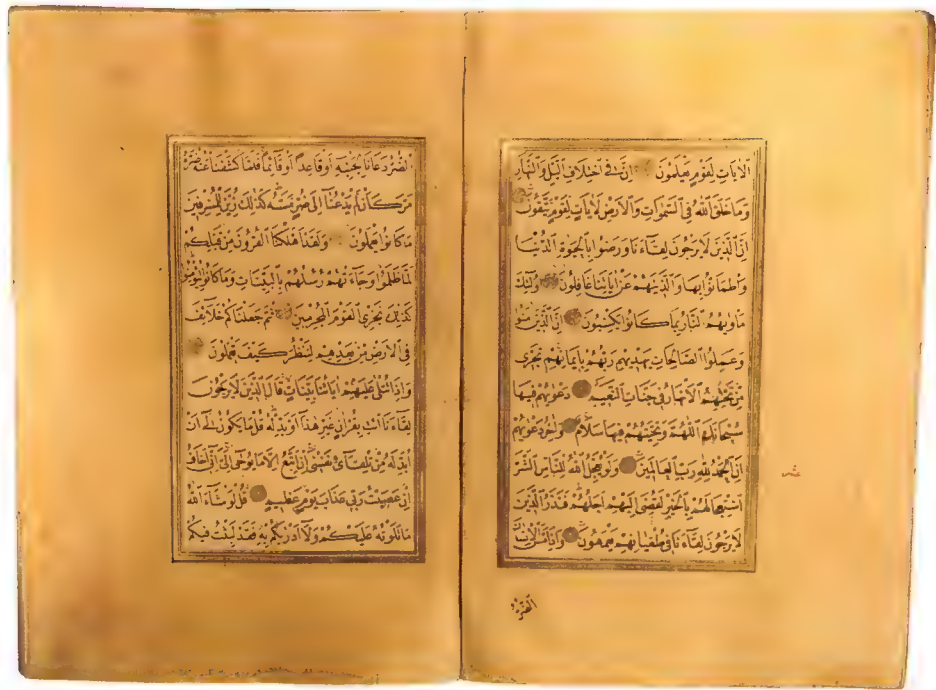 الايات لقوم يعلمون ان في اختلاف اليل والنهار
وما خلق الله في السموات والارض لايات لقوم يتقون
ان الذين لا يرجون لقاءنا ورضوا بالحيوة الدنيا
واطمانوا بها والذين هم عن اياتنا غافلون اولئك
ماويهم النار بما كانوا يكسبون ان الذين امنوا
وعملوا الصالحات يهديهم ربهم بايمانهم تجرى
من تحتهم الانهار في جنات النعيم دعويهم فيها
سبحانك اللهم وتحيتهم فيها سلام واخر دعويهم
ان الحمد لله رب العالمين ولو يعجل الله للناس الشر
استعجالهم بالخير لقضى اليهم اجلهم فنذر الذين
لا يرجون لقاءنا في طغيانهم يعمهون واذا مس الانسان
الضر
عشر
الضر دعانا لجنبه او قاعدا او قائما فلما كشفنا عنه ضره
مر كان لم يدعنا الى ضر مسه كذلك زين للمسرفين
ما كانوا يعملون ولقد اهلكنا القرون من قبلكم
لما ظلموا وجاءتهم رسلهم بالبينات وما كانوا ليؤمنوا
كذلك نجزي القوم المجرمين ثم جعلناكم خلائف
في الارض من بعدهم لننظر كيف تعملون
واذا تتلى عليهم اياتنا بينات قال الذين لا يرجون
لقاءنا ائت بقران غير هذا او بدله قل ما يكون لي ان
ابدله من تلقائ نفسي ان اتبع الا ما يوحى الي اني اخاف
ان عصيت ربي عذاب يوم عظيم قل لو شاء الله
ما تلوته عليكم ولا ادريكم به فقد لبثت فيكم